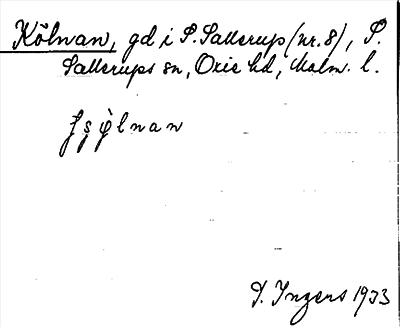 Kölnan, gd i S. Sallerup (nr. 8), S.
Sallerups sn, Oxie hd, Malm. l.
I. Ingers 1933